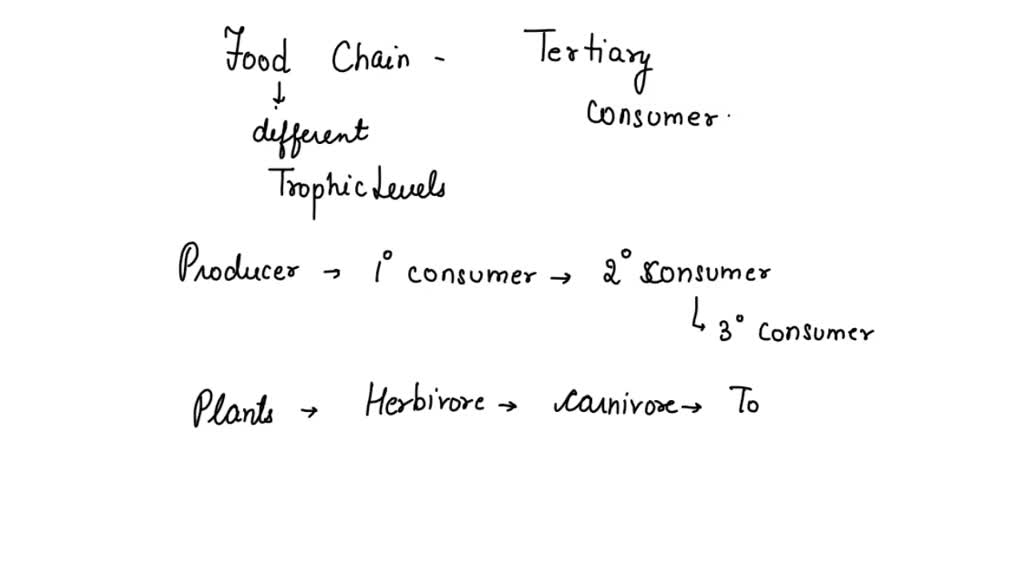 Food Chain - Tertiary
consumer.
↓
different
Trophic Levels
Producer → 1° consumer → 2° consumer
↳ 3° consumer
Plants → Herbivore → Carnivore → To